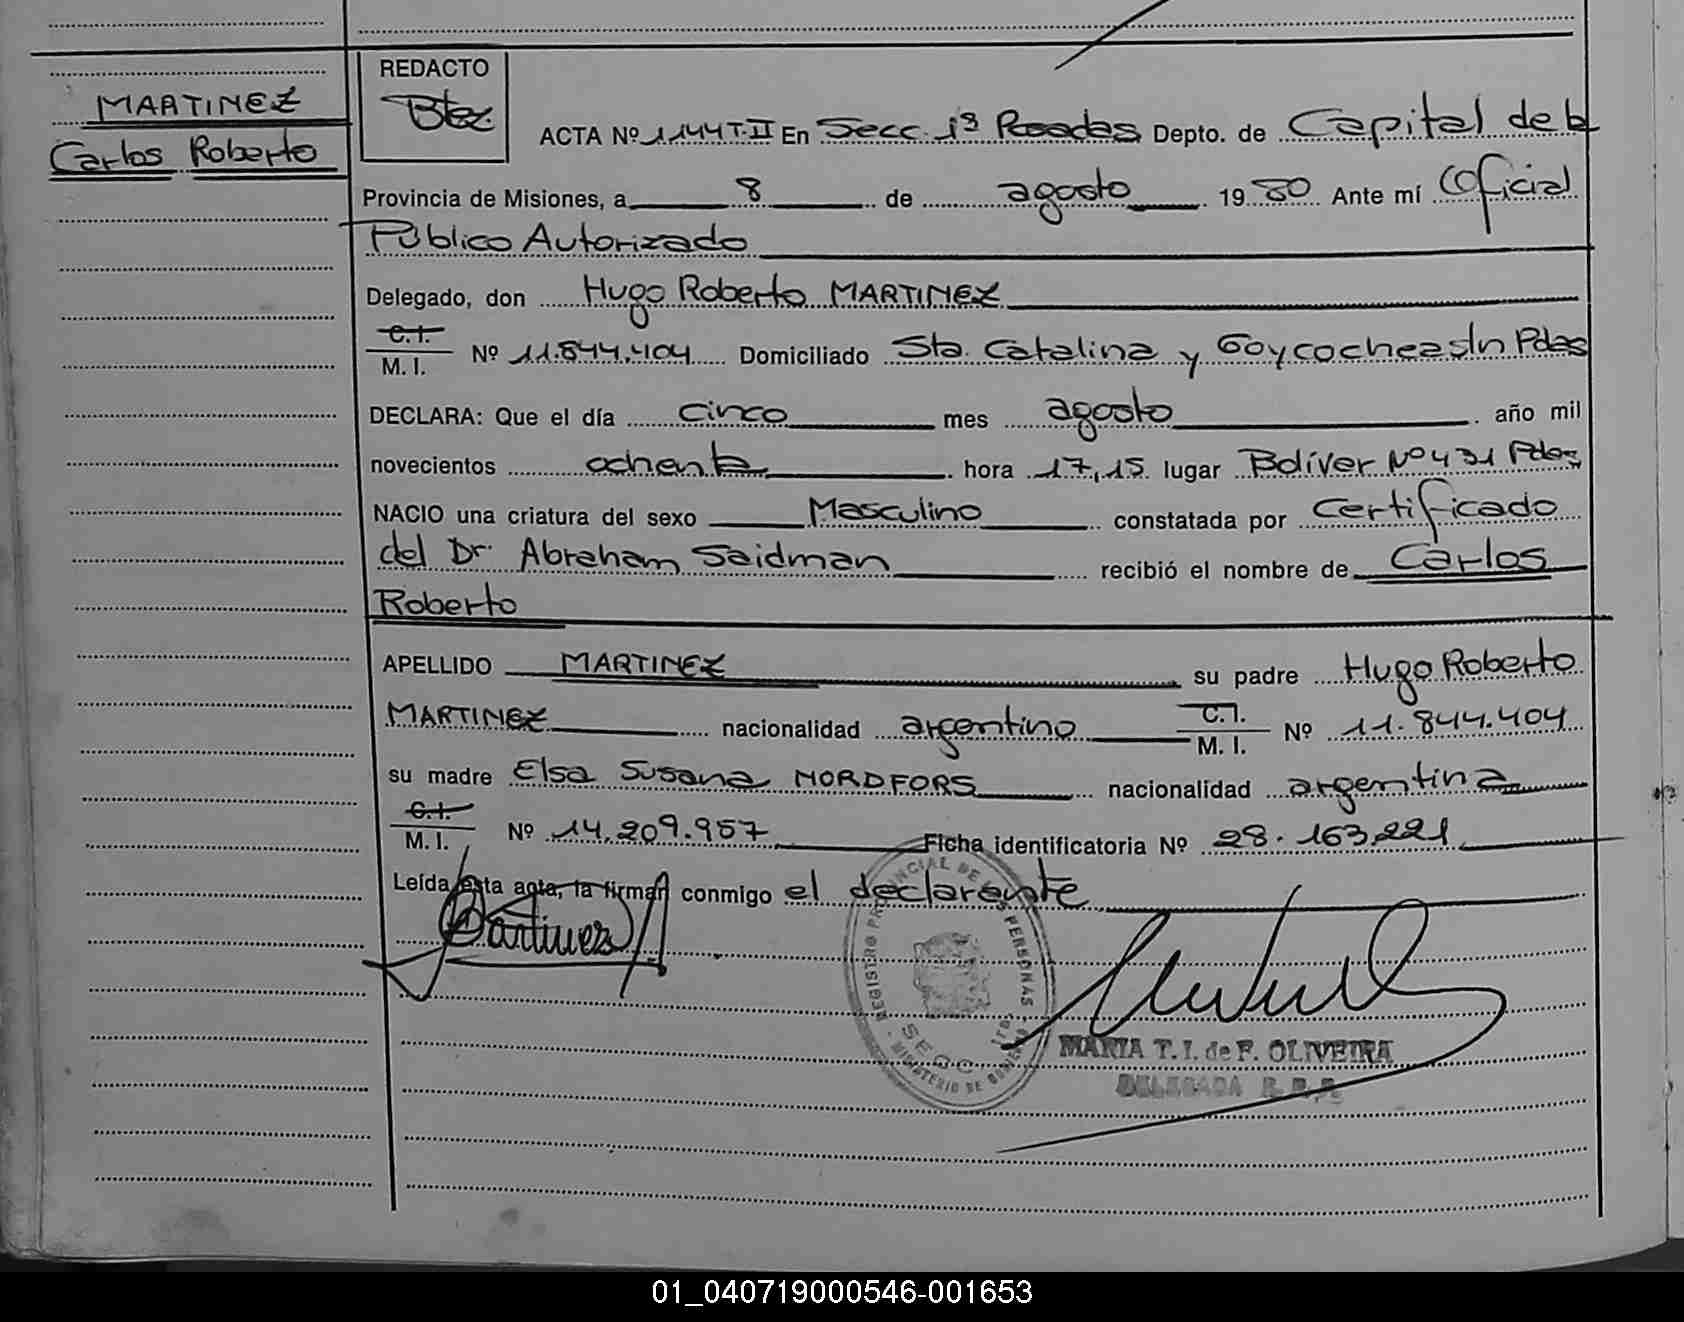 MARTINEZ
Carlos Roberto
REDACTO
Btez.
ACTA Nº 1144 T. II En Secc. 1ª Posadas Depto. de Capital de la
Provincia de Misiones, a 8 de agosto 1980 Ante mí Oficial
Público Autorizado
Delegado, don Hugo Roberto MARTINEZ
C. I.
M. I. Nº 11.844.404 Domiciliado Sta. Catalina y Goycochea s/n Pdas
DECLARA: Que el día cinco mes agosto año mil
novecientos ochenta hora 17,15 lugar Bolívar Nº 431 Pdas
NACIO una criatura del sexo Masculino constatada por Certificado
del Dr. Abraham Saidman recibió el nombre de Carlos
Roberto
APELLIDO MARTINEZ su padre Hugo Roberto
MARTINEZ nacionalidad argentino C. I. M. I. Nº 11.844.404
su madre Elsa Susana NORDFORS nacionalidad argentina
C. I.
M. I. Nº 14.209.957 Ficha identificatoria Nº 28.163.221
Leída esta acta, la firman conmigo el declarante
Martinez
REGISTRO PROVINCIAL DE LAS PERSONAS
MINISTERIO DE GOBIERNO
MARIA T. I. de F. OLIVEIRA
DELEGADA R. P. P.
01_040719000546-001653